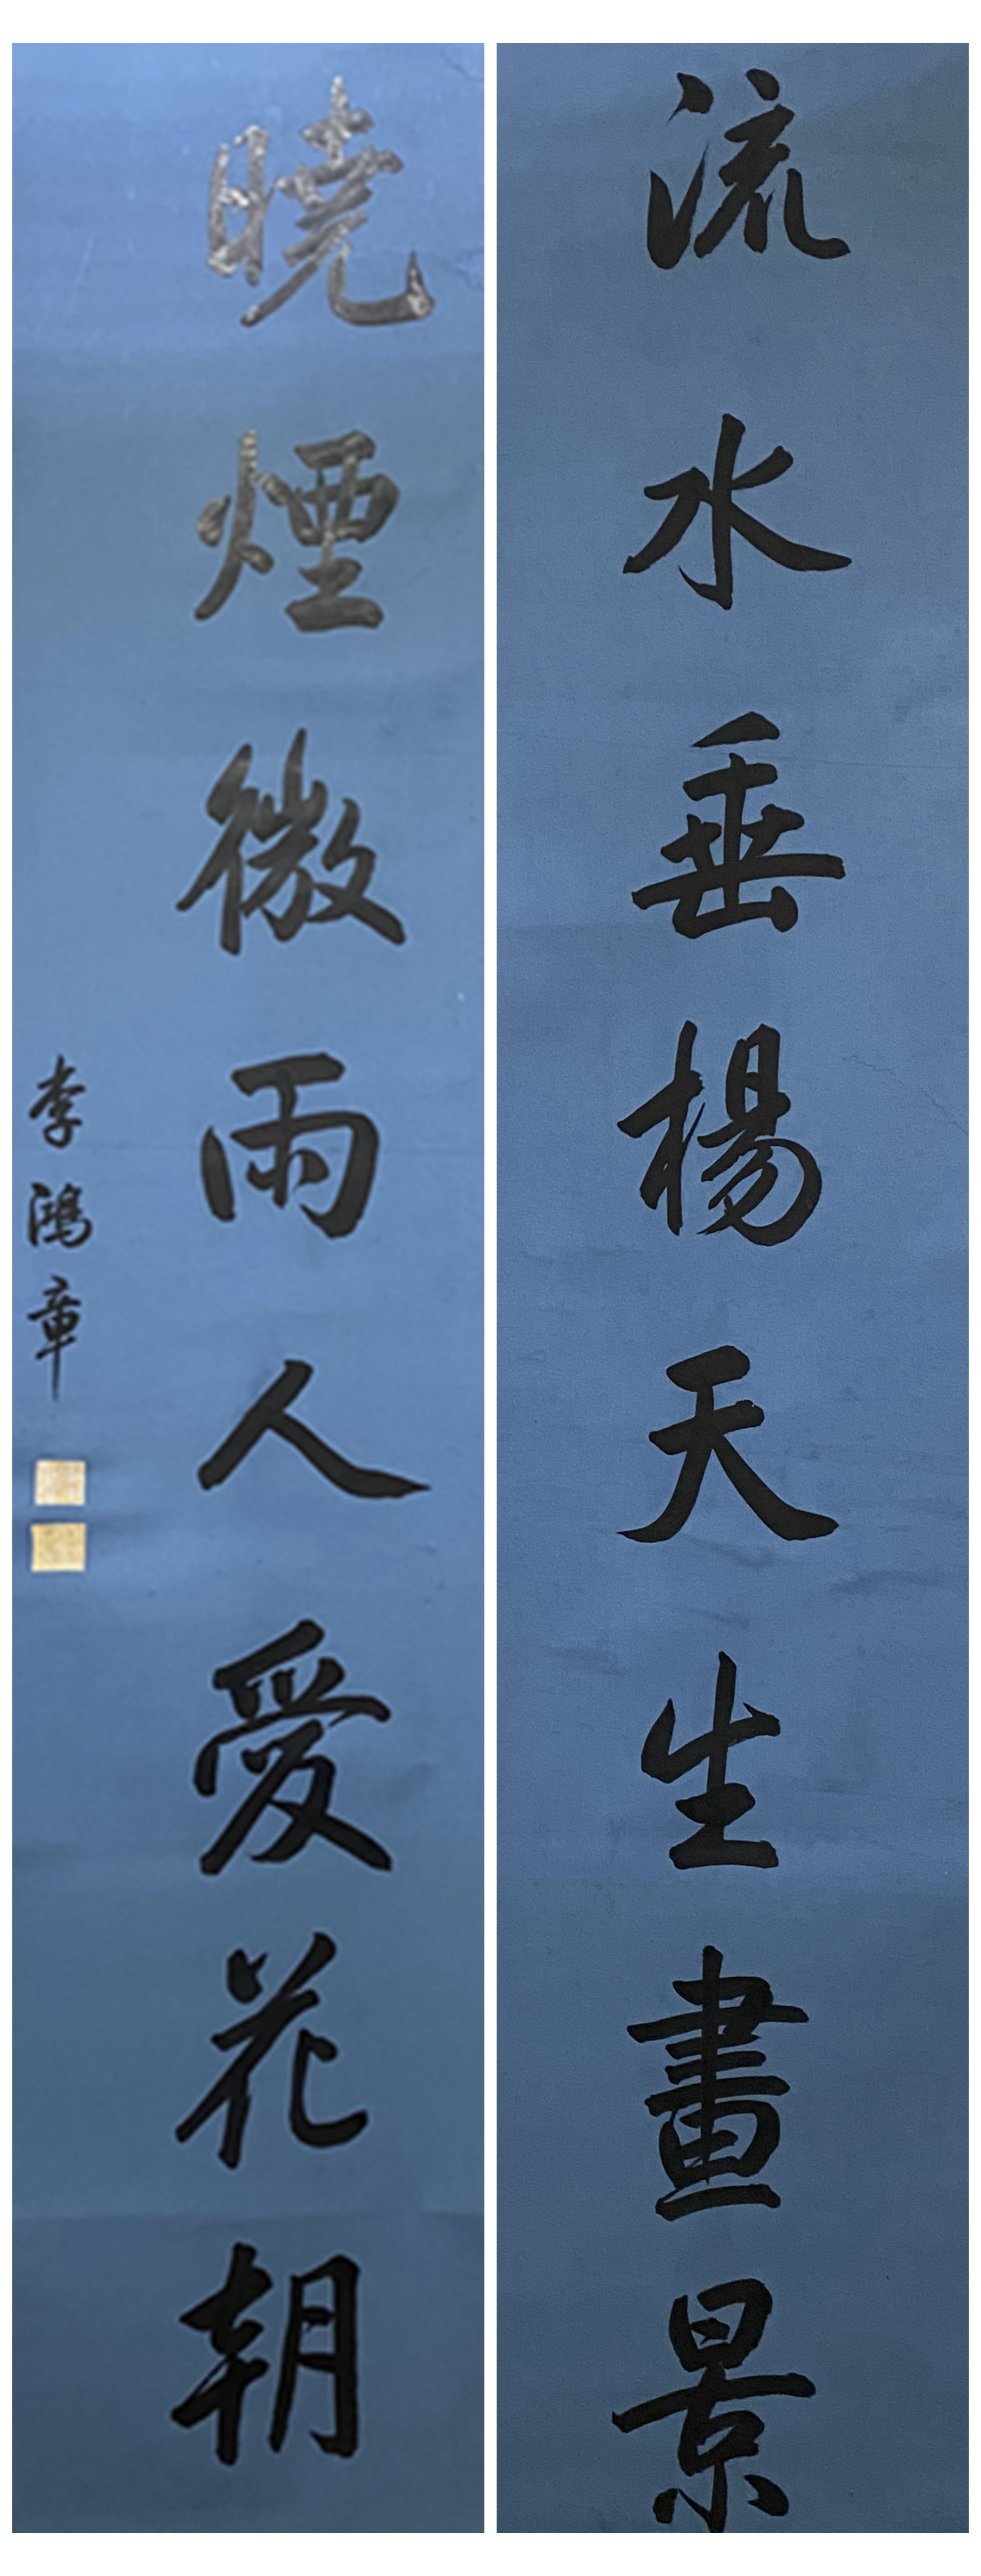 流水垂楊天生畫景
曉煙微雨人愛花朝
李鴻章